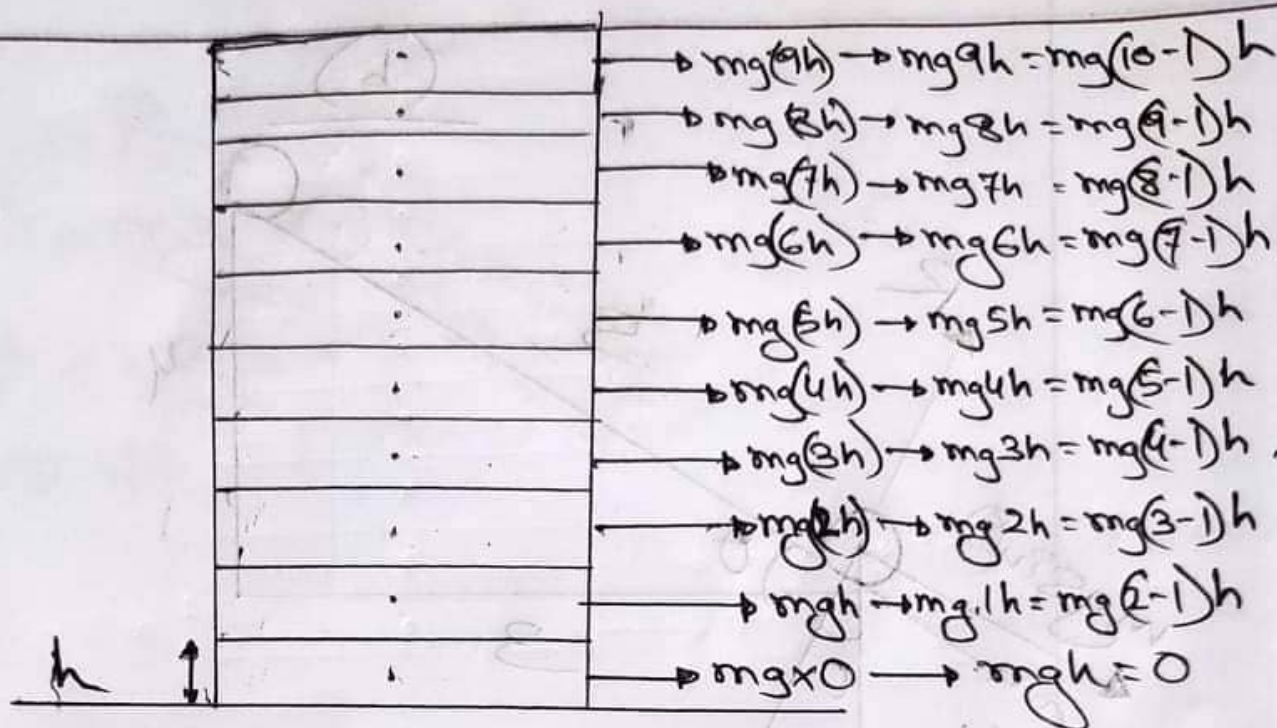 → mg(9h) → mg9h = mg(10-1)h
→ mg(8h) → mg8h = mg(9-1)h
→ mg(7h) → mg7h = mg(8-1)h
→ mg(6h) → mg6h = mg(7-1)h
→ mg(5h) → mg5h = mg(6-1)h
→ mg(4h) → mg4h = mg(5-1)h
→ mg(3h) → mg3h = mg(4-1)h
→ mg(2h) → mg2h = mg(3-1)h
→ mgh → mg.1h = mg(2-1)h
h → mgx0 → mgh = 0